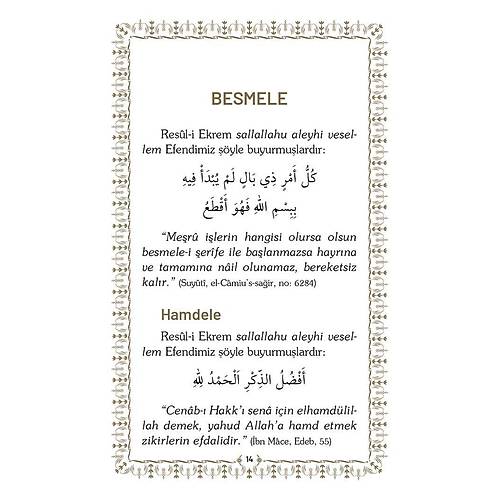 BESMELE
Resûl-i Ekrem sallallahu aleyhi vesel-
lem Efendimiz şöyle buyurmuşlardır:
كُلُّ أَمْرٍ ذِي بَالٍ لَمْ يُبْدَأْ فِيهِ
بِبِسْمِ اللهِ فَهُوَ أَقْطَعُ
“Meşrû işlerin hangisi olursa olsun
besmele-i şerîfe ile başlanmazsa hayrına
ve tamamına nâil olunamaz, bereketsiz
kalır.” (Suyûtî, el-Câmiu's-sağir, no: 6284)
Hamdele
Resûl-i Ekrem sallallahu aleyhi vesel-
lem Efendimiz şöyle buyurmuşlardır:
أَفْضَلُ الذِّكْرِ اَلْحَمْدُ لِلهِ
“Cenâb-ı Hakk’ı senâ için elhamdülil-
lah demek, yahud Allah’a hamd etmek
zikirlerin efdalidir.” (İbn Mâce, Edeb, 55)
14